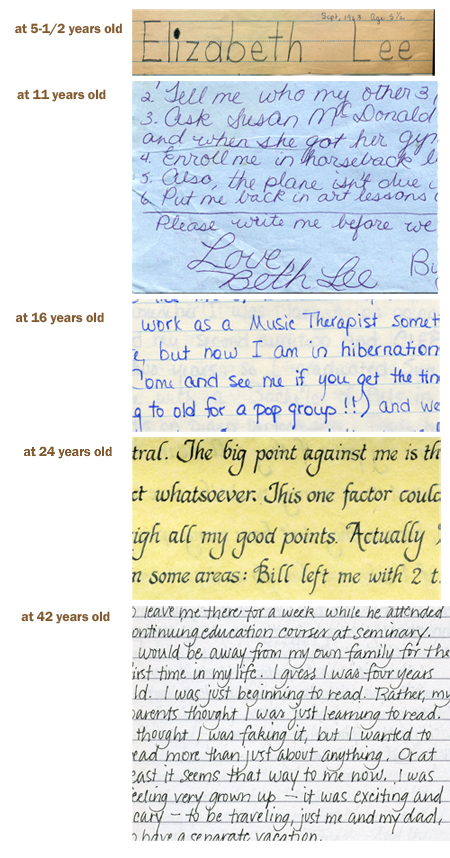 at 5-1/2 years old
Sept, 1963 Age 5½
Elizabeth Lee
at 11 years old
2. Tell me who my other 3
3. Ask Susan McDonald
and when she got her gym
4. Enroll me in horseback l
5. Also, the plane isn't due i
6. Put me back in art lessons
Please write me before we
Love,
Beth Lee
at 16 years old
work as a Music Therapist somet
e, but now I am in hibernation
Come and see me if you get the tim
g to old for a pop group!!) and we
at 24 years old
tral. The big point against me is th
ct whatsoever. This one factor could
igh all my good points. Actually
n some areas: Bill left me with 2 t
at 42 years old
o leave me there for a week while he attended
ontinuing education courses at seminary.
would be away from my own family for the
irst time in my life. I guess I was four years
ld. I was just beginning to read. Rather, my
arents thought I was just learning to read.
thought I was faking it, but I wanted to
ead more than just about anything. Or at
east it seems that way to me now. I was
eeling very grown up – it was exciting and
cary – to be traveling, just me and my dad,
o have a separate vacation.